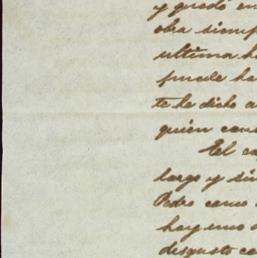 y quedó en
obra siemp
ultima h
puede ha
te he dicho a
quién cono
El
largo y sin
Pedro como
hay uno d
disgusto co